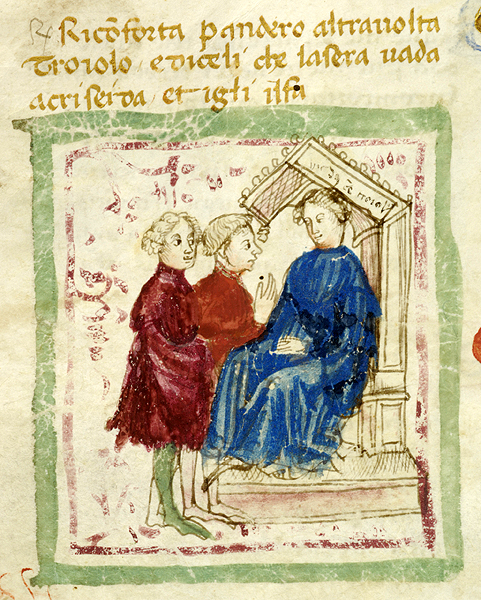 Ricōforta pandero altrauolta
Troiolo e diceli che la sera uada
a criseida et igli il fa